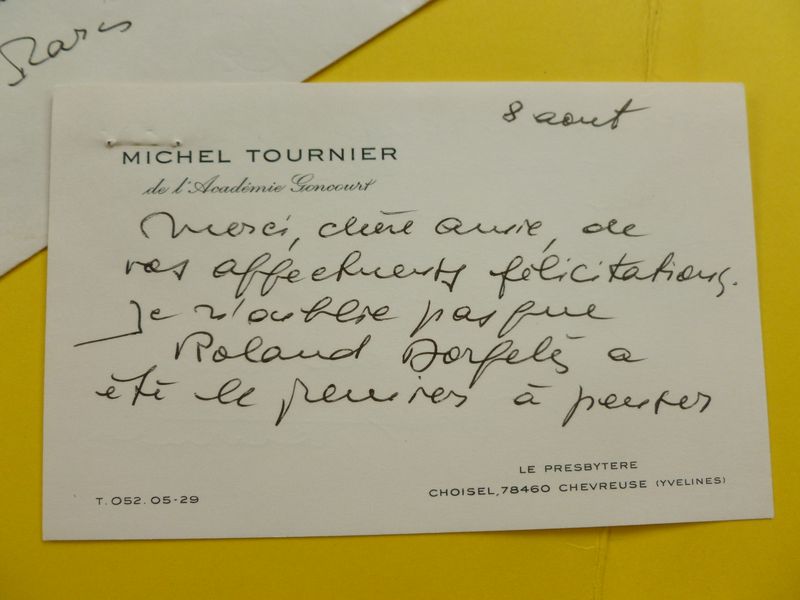 Paris
8 aout
MICHEL TOURNIER
de l'Académie Goncourt
Merci, chère amie, de
vos affectueuses félicitations.
Je n'oublie pas que
Roland Dorgelès a
été le premier à penser
LE PRESBYTERE
CHOISEL, 78460 CHEVREUSE (YVELINES)
T. 052. 05-29